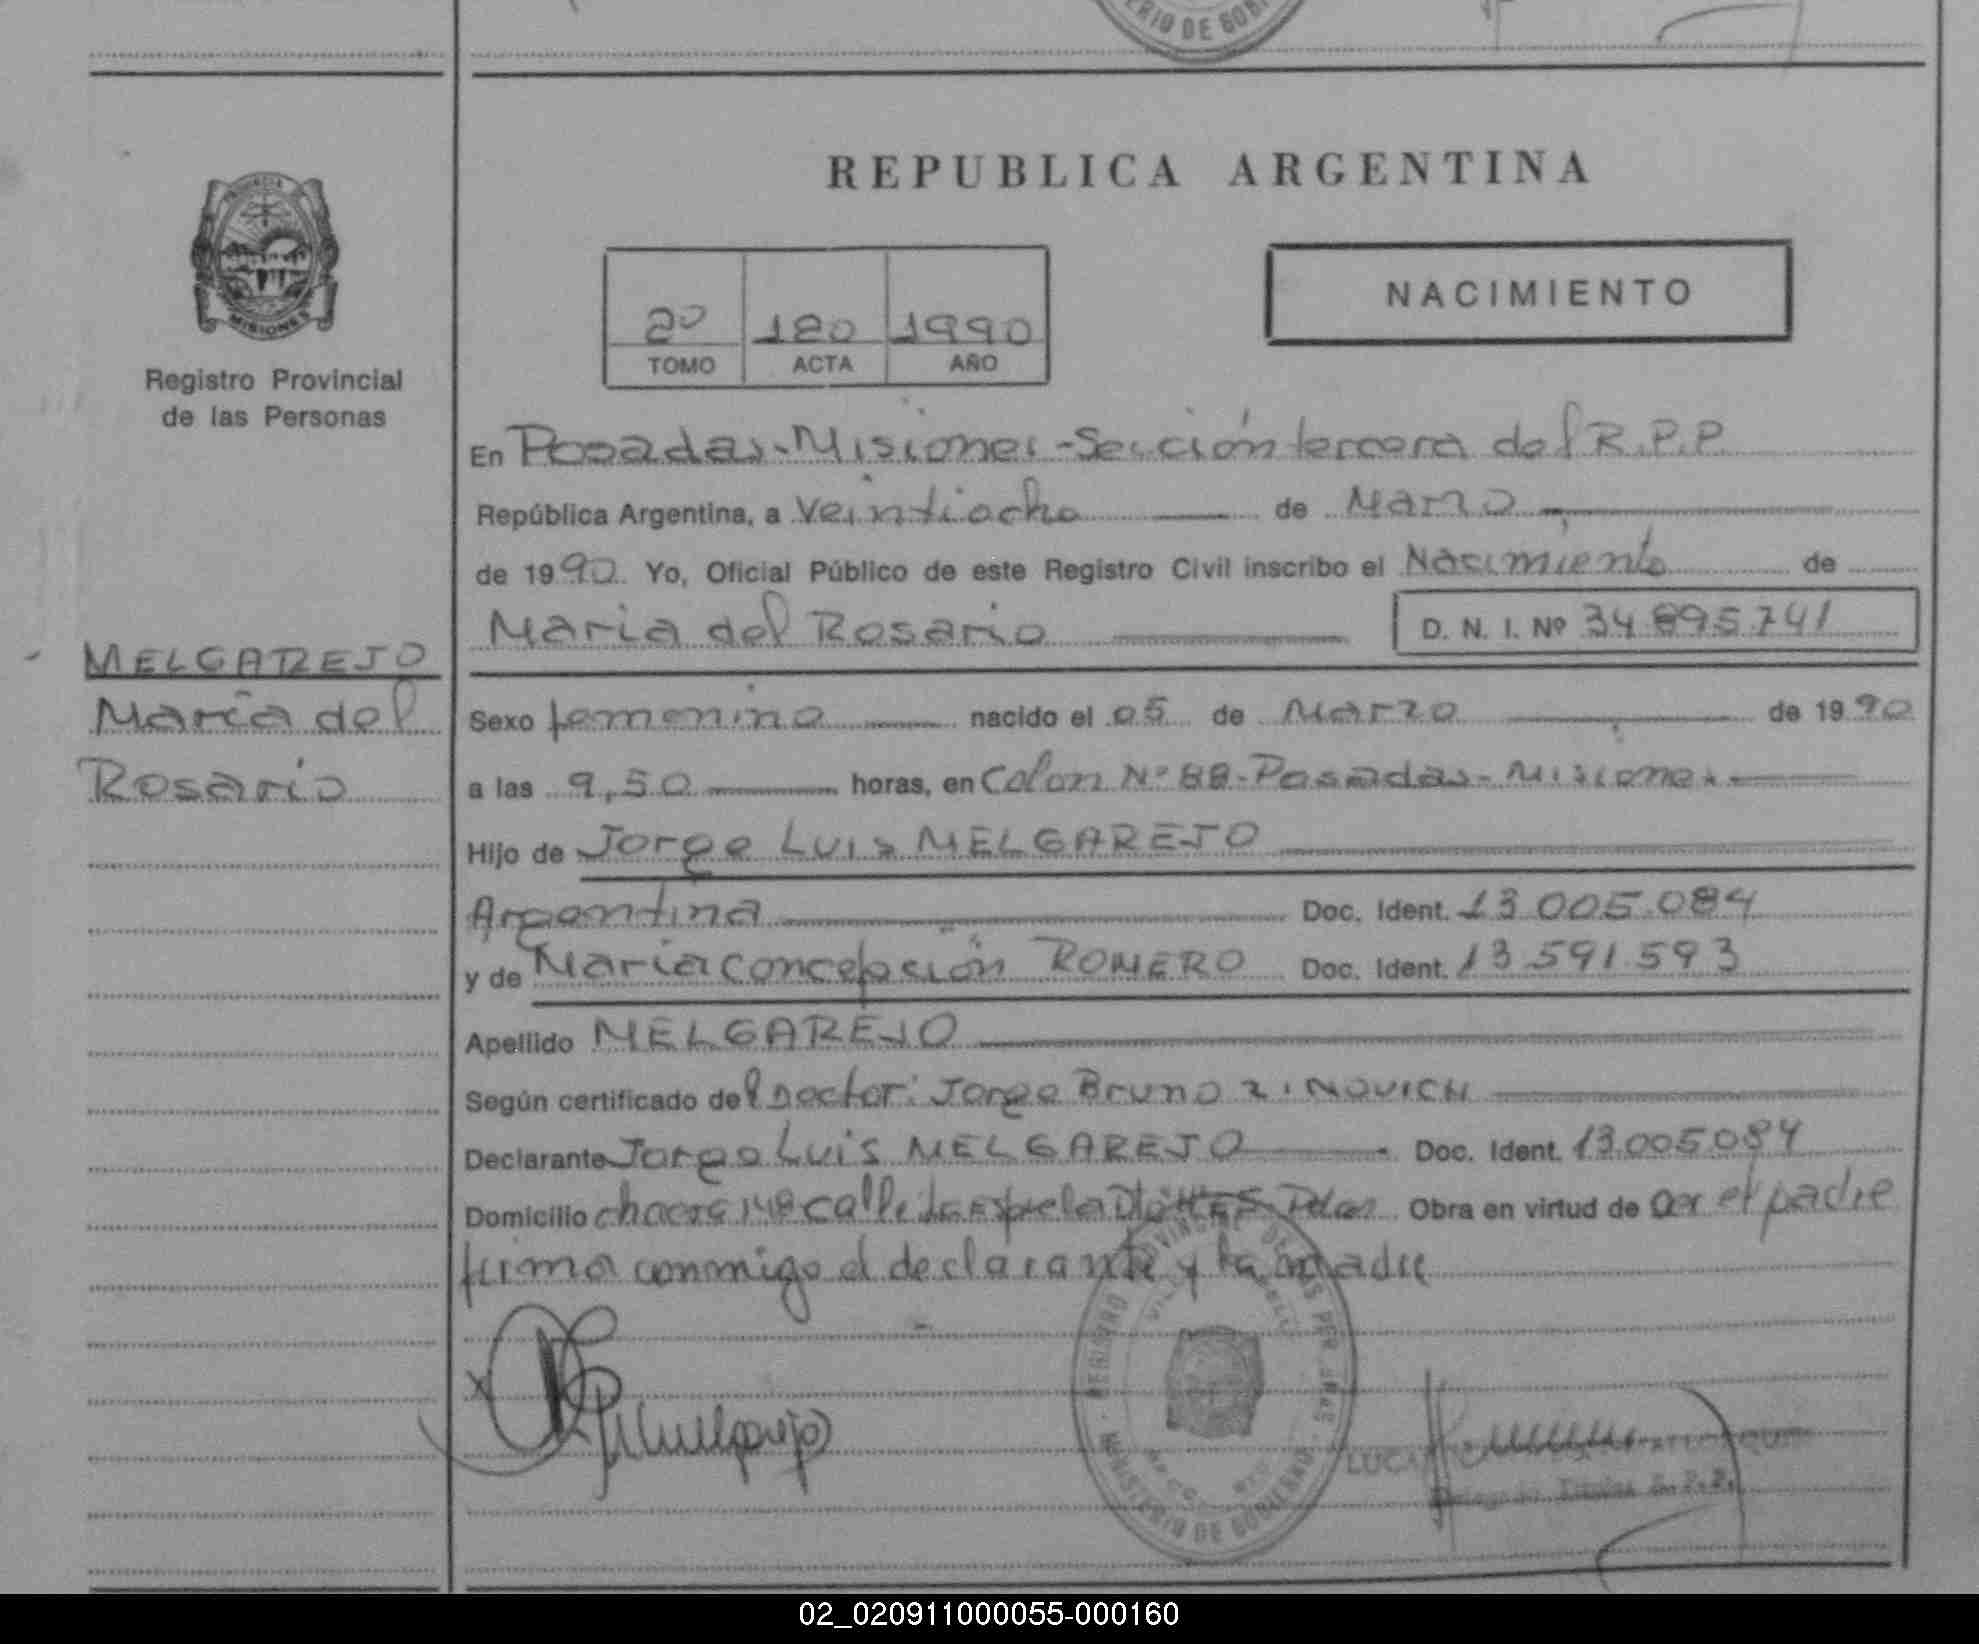 ERIO DE GOBI
REPUBLICA ARGENTINA
PROVINCIA
MISIONES
Registro Provincial
de las Personas
2º 180 1990
TOMO ACTA AÑO
NACIMIENTO
En Posadas-Misiones-Sección tercera del R.P.P.
República Argentina, a veintiocho de Marzo
de 1990 Yo, Oficial Público de este Registro Civil inscribo el Nacimiento de
Maria del Rosario D. N. I. Nº 34895741
MELGAREJO
María del
Rosario
Sexo femenino nacido el 05 de Marzo de 1990
a las 9,50 horas, en Colon Nº 88-Posadas-Misiones
Hijo de Jorge Luis MELGAREJO
Argentina Doc. Ident. 13 005.084
y de Maria Concepción ROMERO Doc. Ident. 13 591 593
Apellido MELGAREJO
Según certificado del Doctor: Jorge Bruno ZINOVICH
Declarante Jorge Luis MELGAREJO Doc. Ident. 13.005.084
Domicilio chacra 148 calle Obra en virtud de ser el padre
firma conmigo el declarante y la madre
REGISTRO PROVINCIAL DE LAS PERSONAS
MINISTERIO DE GOBIERNO
x Melgarejo
R.P.P.
02_020911000055-000160